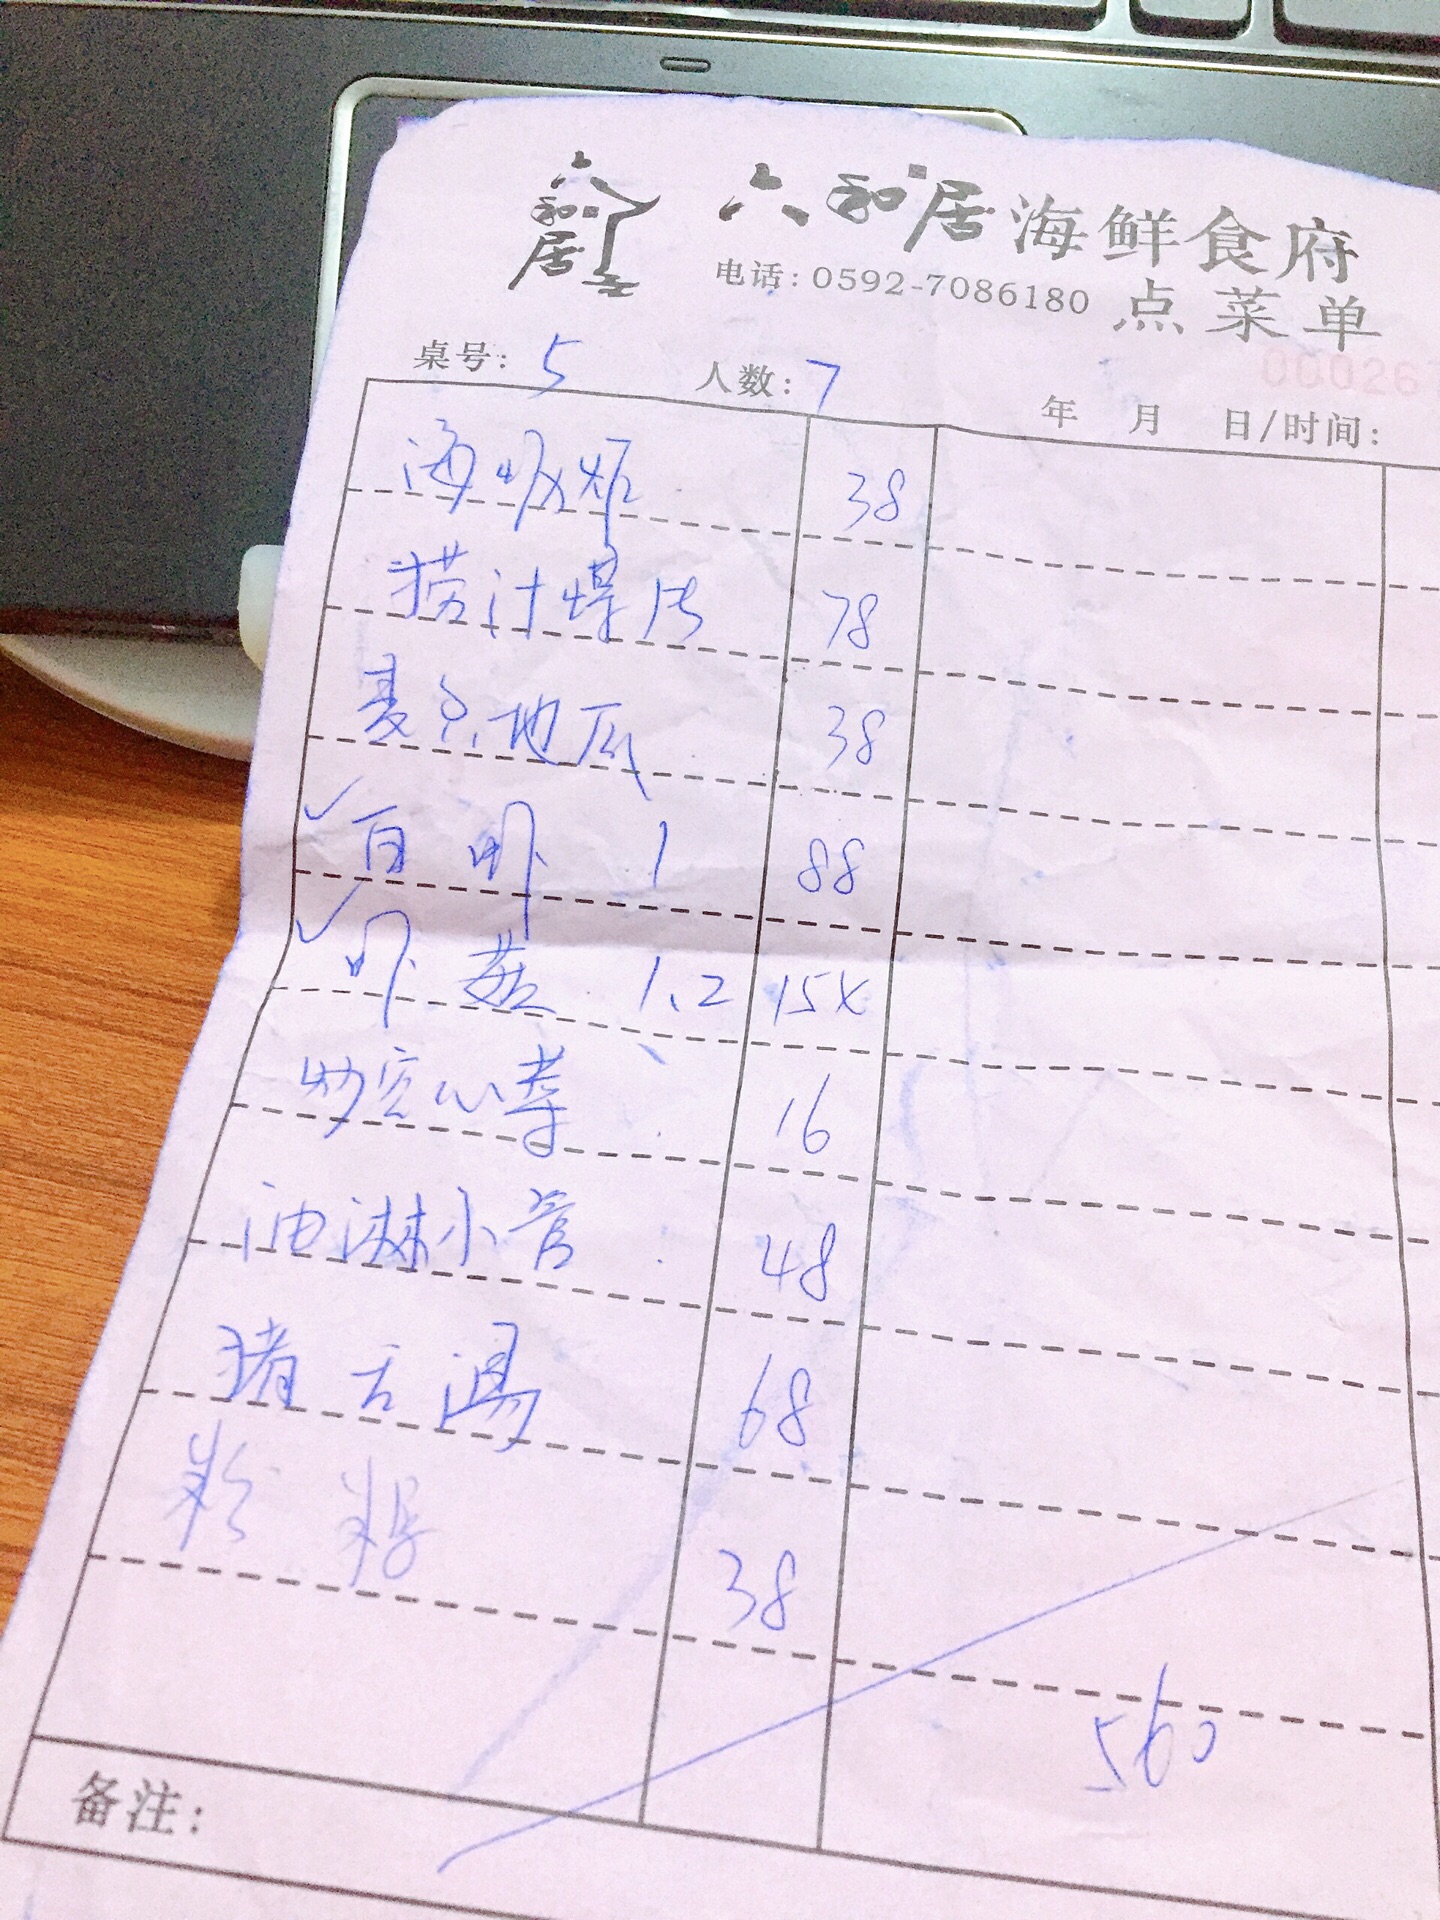 六和居
六和居海鲜食府
电话: 0592-7086180 点菜单
00026
桌号: 5 人数: 7
年 月 日/时间:
海蛎煎 38
捞汁 78
麦 地瓜 38
白 1 88
菇 1.2 15X
炒空心菜 16
油淋小管 48
猪舌汤 68
粉粿 38
560
备注: